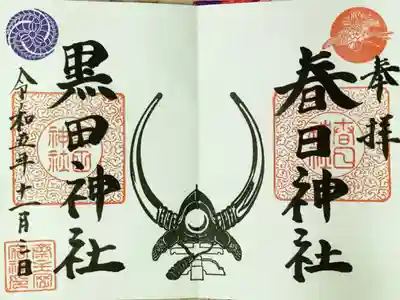 奉拝
春日神社
黒田神社
令和五年十一月三日